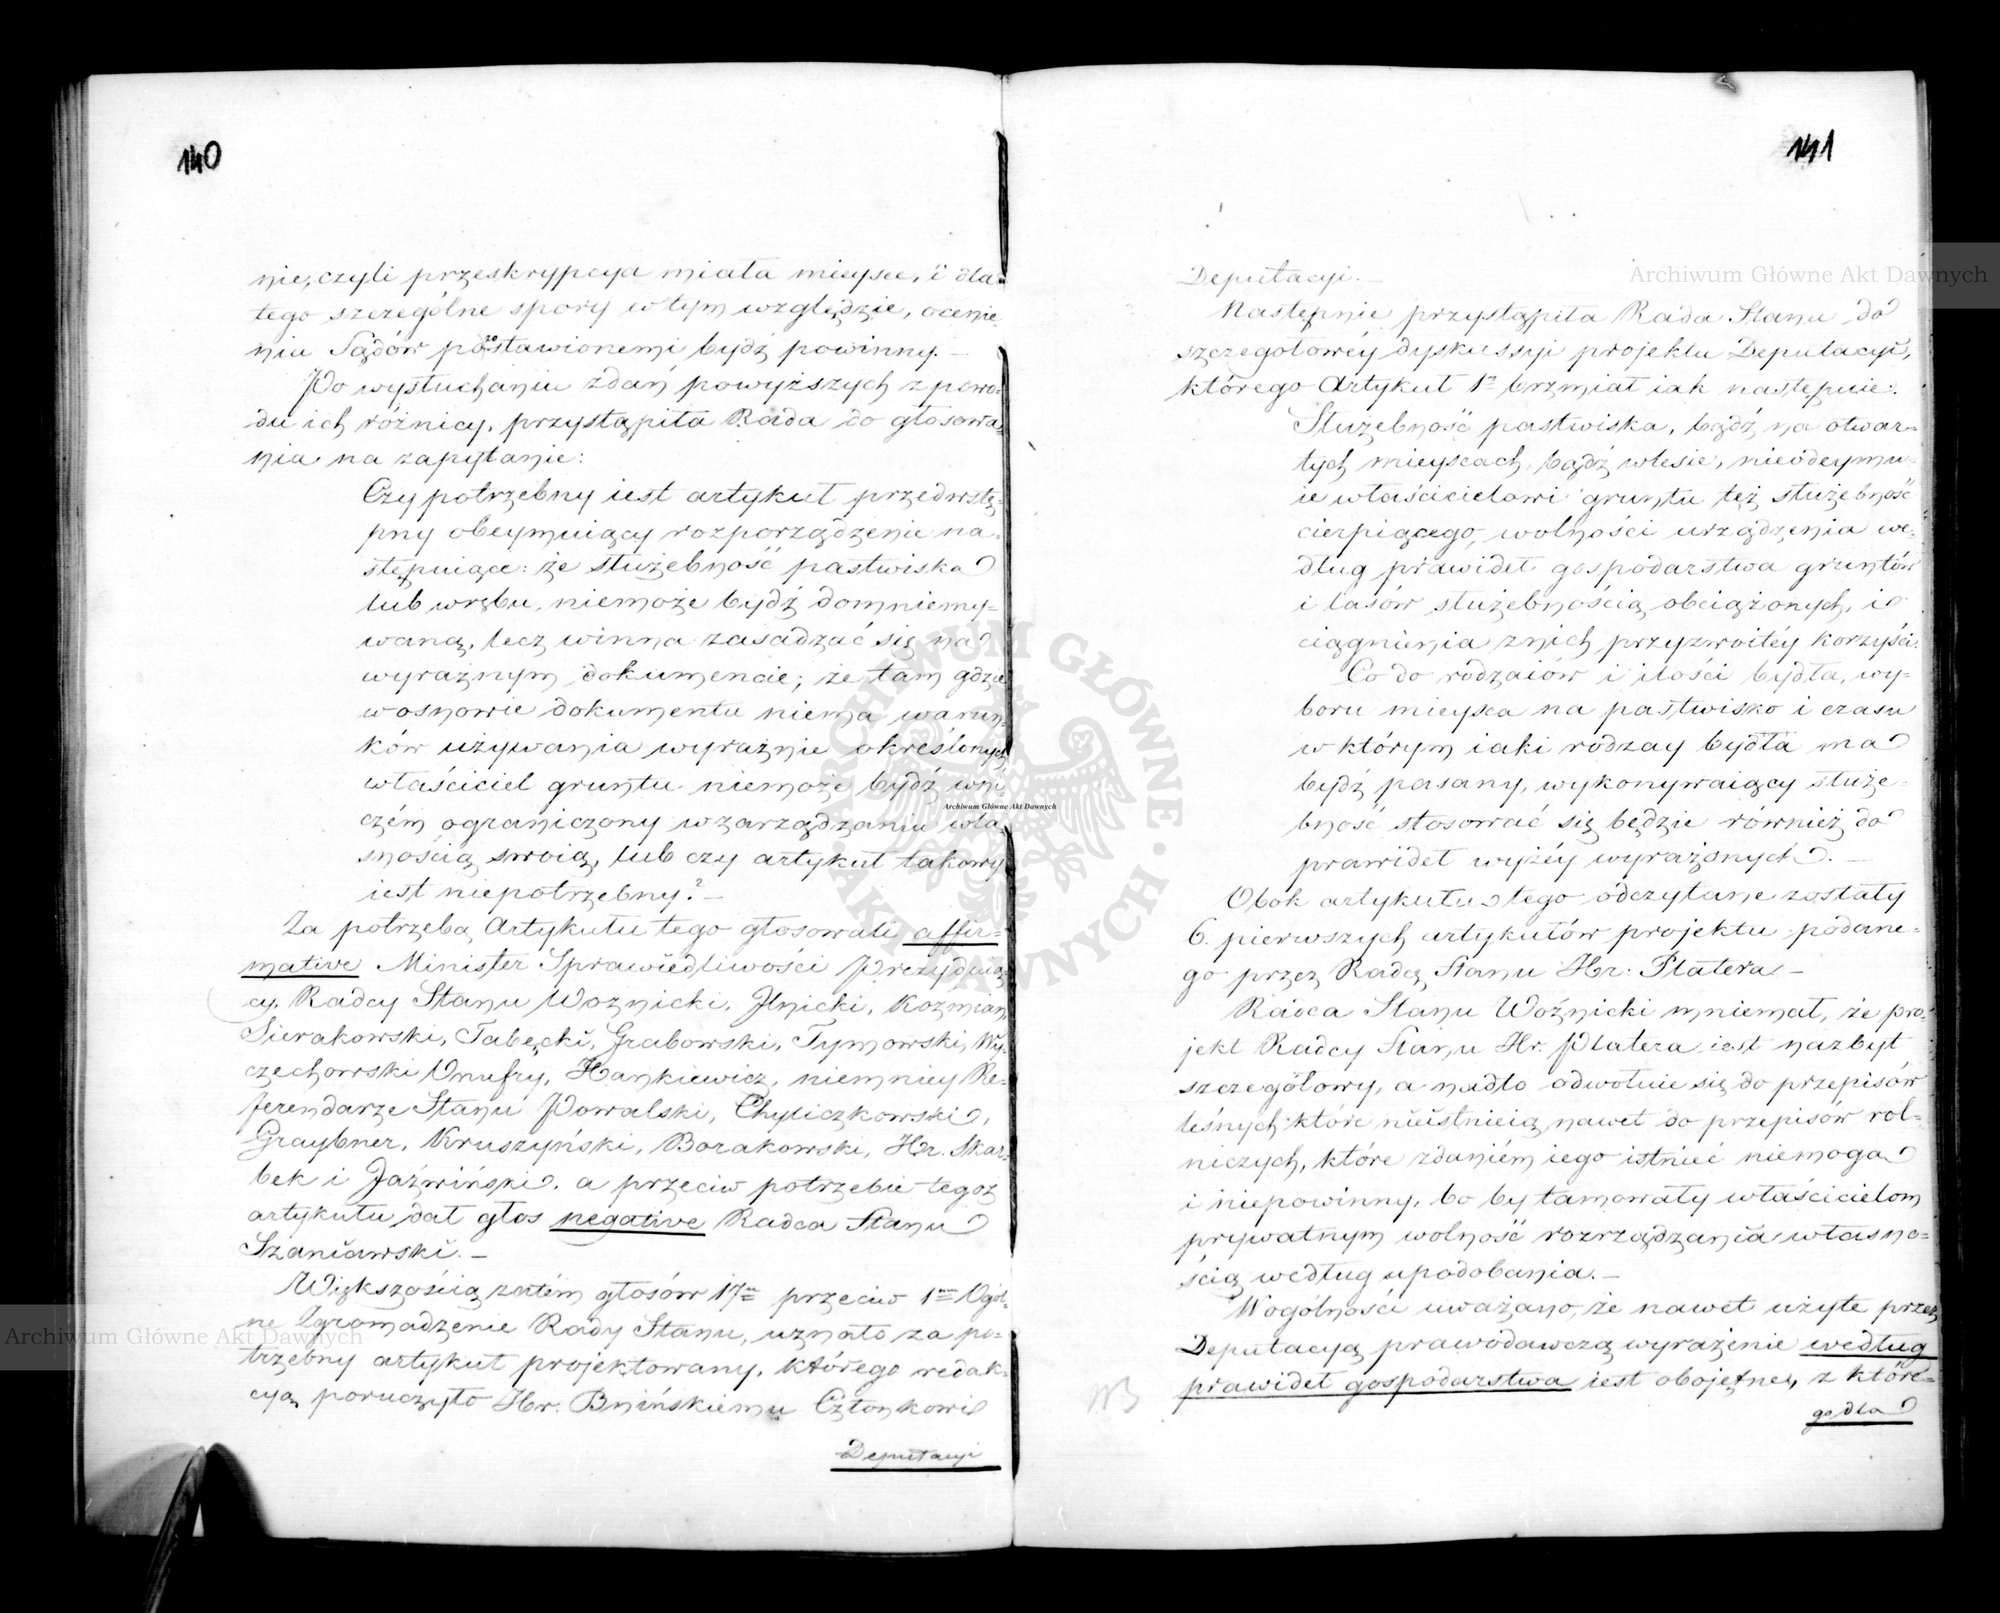 140
nie, czyli przeskrypcya miała mieysce, i dla
tego szczególne spory w tym względzie, ocenie-
niu Sądów pozostawionemi bydź powinny. —
Po wysłuchaniu zdań powyższych z powo-
du ich różnicy, przystąpiła Rada do głosowa-
nia na zapytanie:
Czy potrzebny iest artykuł przedwstę-
pny obeymuiący rozporządzenie na-
stępuiące: że służebność pastwiska
lub wrębu, niemoże bydź domniemy-
waną, lecz winna zasadzać się na
wyraźnym dokumencie; że tam gdzie
w osnowie dokumentu niema warun-
ków używania wyraźnie określonych
właściciel gruntu niemoże bydź wni-
czém ograniczony w zarządzaniu wła-
snością swoią, lub czy artykuł takowy
iest niepotrzebny? —
Za potrzebą Artykułu tego głosowali affir-
mative Minister Sprawiedliwości Prezyduią-
cy, Radcy Stanu Woznicki, Ilnicki, Kozmian
Sierakowski, Tabęcki, Grabowski, Tymowski, Wy-
czechowski Onufry, Hankiewicz, niemniey Re-
ferendarze Stanu Powalski, Chyliczkowski,
Graybner, Kruszyński, Borakowski, Hr. Skar-
bek i Jaźwiński, a przeciw potrzebie tegoż
artykułu dał głos negative Radca Stanu
Szaniawski. —
Większością zatém głosów 17tu przeciw 1mu Ogól-
ne Zgromadzenie Rady Stanu, uznało za po-
trzebny artykuł projektowany, którego redak-
cyą poruczyło Hr. Bnińskiemu Członkowi
Deputacyi
141
Deputacyi. —
Następnie przystąpiła Rada Stanu do
szczegółowéy dyskussyi projektu Deputacyi,
którego Artykuł 1n brzmiał iak następuie:
Służebność pastwiska, bądź na otwar-
tych mieyscach, bądź w lesie, nieodeymu-
ie właścicielowi gruntu też służebność
cierpiącego, wolności urządzenia we-
dług prawideł gospodarstwa gruntów
i lasów służebnością obciążonych, i
ciągnienia z nich przyzwoitéy korzyści.
Co do rodzaiów i ilości bydła, wy-
boru mieysca na pastwisko i czasu
w którym iaki rodzay bydła ma
bydź pasany, wykonywaiący służe-
bność stosować się będzie również do
prawideł wyżéy wyrażonych. —
Obok artykułu tego odczytane zostały
6. pierwszych artykułów projektu podane-
go przez Radcę Stanu Hr: Platera —
Radca Stanu Woźnicki mniemał, że pro-
jekt Radcy Stanu Hr. Platera iest nazbyt
szczegółowy, a nadto odwołuie się do przepisów
leśnych które nieistnieią nawet do przepisów rol-
niczych, które zdaniém iego istnieć niemogą
i niepowinny, bo by tamowały właścicielom
prywatnym wolność rozrządzania własno-
ścią według upodobania. —
W ogólności uważano, że nawet użyte przez
Deputacyą prawodawczą wyrażenie według
prawideł gospodarstwa iest oboiętne, z które-
NB
go dla
Archiwum Główne Akt Dawnych
Archiwum Główne Akt Dawnych
Archiwum Główne Akt Dawnych
ARCHIWUM GŁÓWNE · AKT DAWNYCH ·